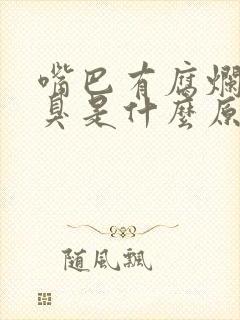 嘴巴有腐爛
臭是什麼原
随風飄